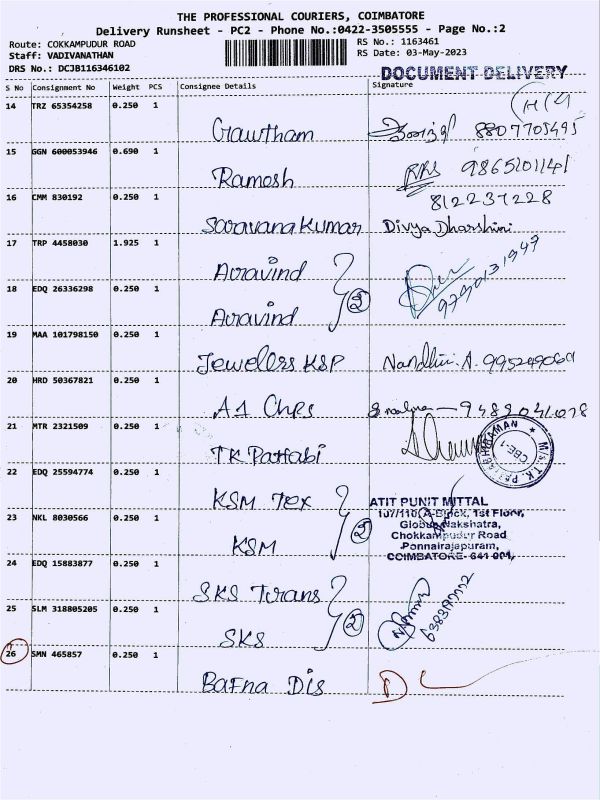 THE PROFESSIONAL COURIERS, COIMBATORE
Delivery Runsheet - PC2 - Phone No.:0422-3505555 - Page No.:2
Route: COKKAMPUDUR ROAD
RS No.: 1163461
Staff: VADIVANATHAN
RS Date: 03-May-2023
DRS No.: DCJB116346102
DOCUMENT DELIVERY
S No Consignment No Weight PCS Consignee Details Signature
14 TRZ 65354258 0.250 1
Gawtham 8807705495
15 GGN 600053946 0.690 1
Ramesh
16 CMM 830192 0.250 1
8122371228
Saravana Kumar Divya Dharshini
17 TRP 4458030 1.925 1
Aravind
18 EDQ 26336298 0.250 1
2
Aravind
19 MAA 101798150 0.250 1
Jewellers KSP Nandhini. A.
20 HRD 50367821 0.250 1
A1 Chps
21 MTR 2321509 0.250 1
TK Pattabi
M/S.T.K. CBE-1
22 EDQ 25594774 0.250 1
KSM Tex
ATIT PUNIT MITTAL
107/110, A-Block, 1st Floor,
23 NKL 8030566 0.250 1
2
Globus Nakshatra,
Chokkampudur Road
KSM
Ponnairajapuram,
COIMBATORE- 641 001.
24 EDQ 15883877 0.250 1
SKS Trans
25 SLM 318805205 0.250 1
2
SKS
26 SMN 465857 0.250 1
Bafna Dis